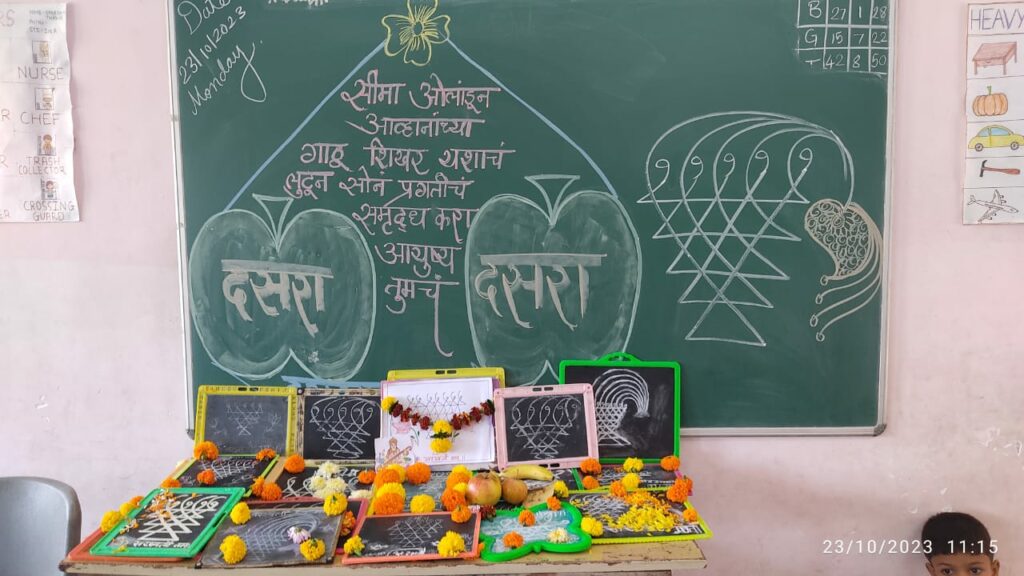 Date
23/10/2023
Monday
सीमा ओलांडून
आव्हानांच्या
गाठू शिखर यशाचं
लुटून सोनं प्रगतीचं
समृद्ध करा
आयुष्य
तुमचं
दसरा
दसरा
B 27 1 28
G 15 7 22
T 42 8 50
HEAVY
NURSE
CHEF
TRASH
COLLECTOR
CROSSING
GUARD
23/10/2023 11:15